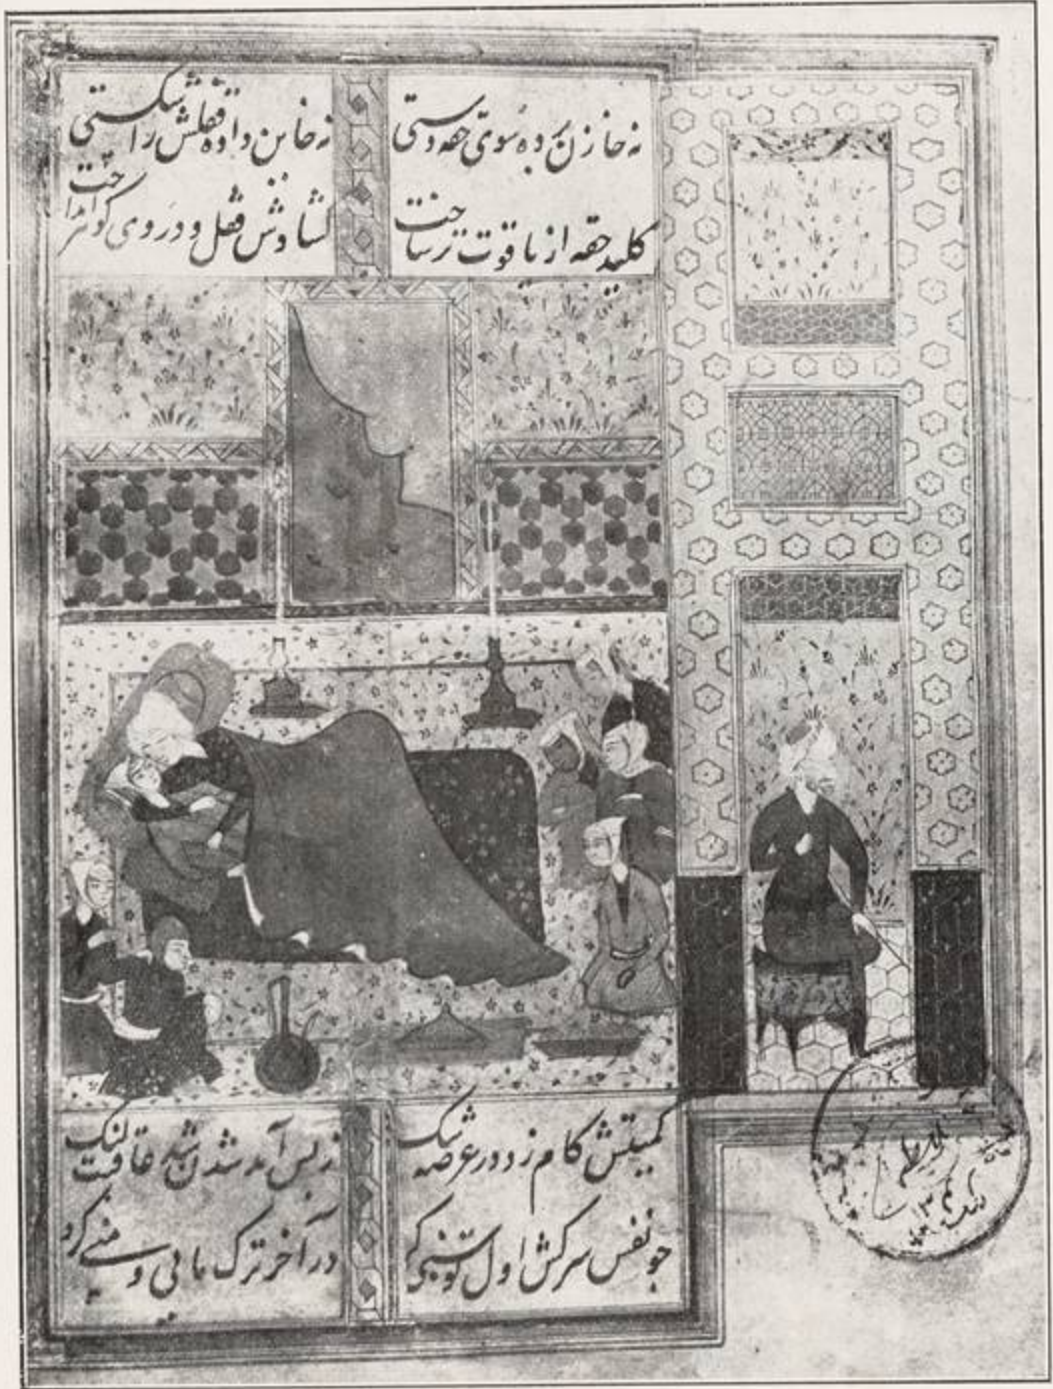 نه خازن برده سوی حقه دستی نه خاین داده قفلش را شکستی
کلید حقه از یاقوت تر ساخت کشادش قفل و در وی کوهر انداخت
کمیتش کام زد در عرصه تنک ز بس آمد شدن شد عاقبت لنک
چو نفس سرکش اول توسنی کرد در آخر ترک مایی و منی کرد